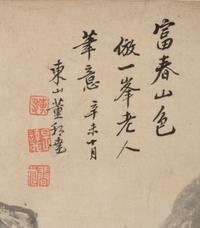 富春山色
倣一峯老人
筆意辛未十月
東山董邦達